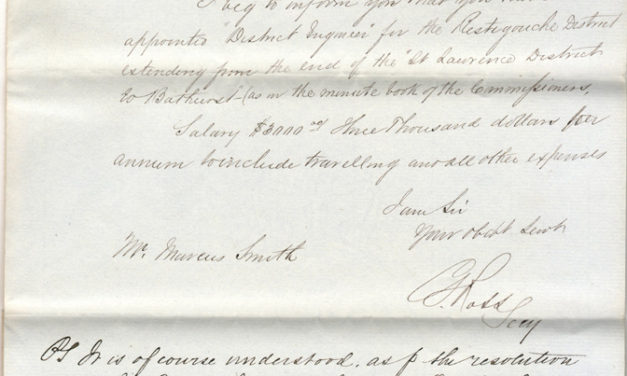 I beg to inform you that you have
appointed "District Engineer" for the Restigouche District
extending from the end of the "St Lawrence District
to Bathurst (as in the minute book of the Commissioners,
Salary $3000 00 Three Thousand dollars per
annum to include travelling and all other expenses
I am Sir
Your obdt Servt
Mr. Marcus Smith
Ross
Secy
PS It is of course understood, as p the resolution